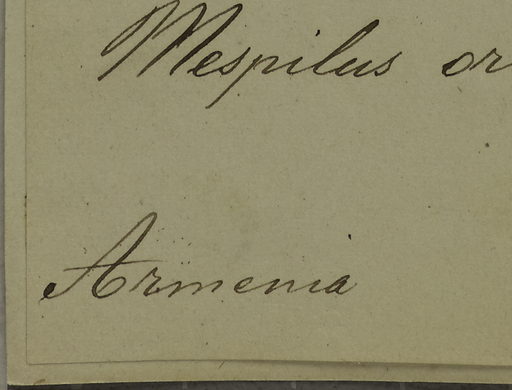 Mespilus or
Armenia